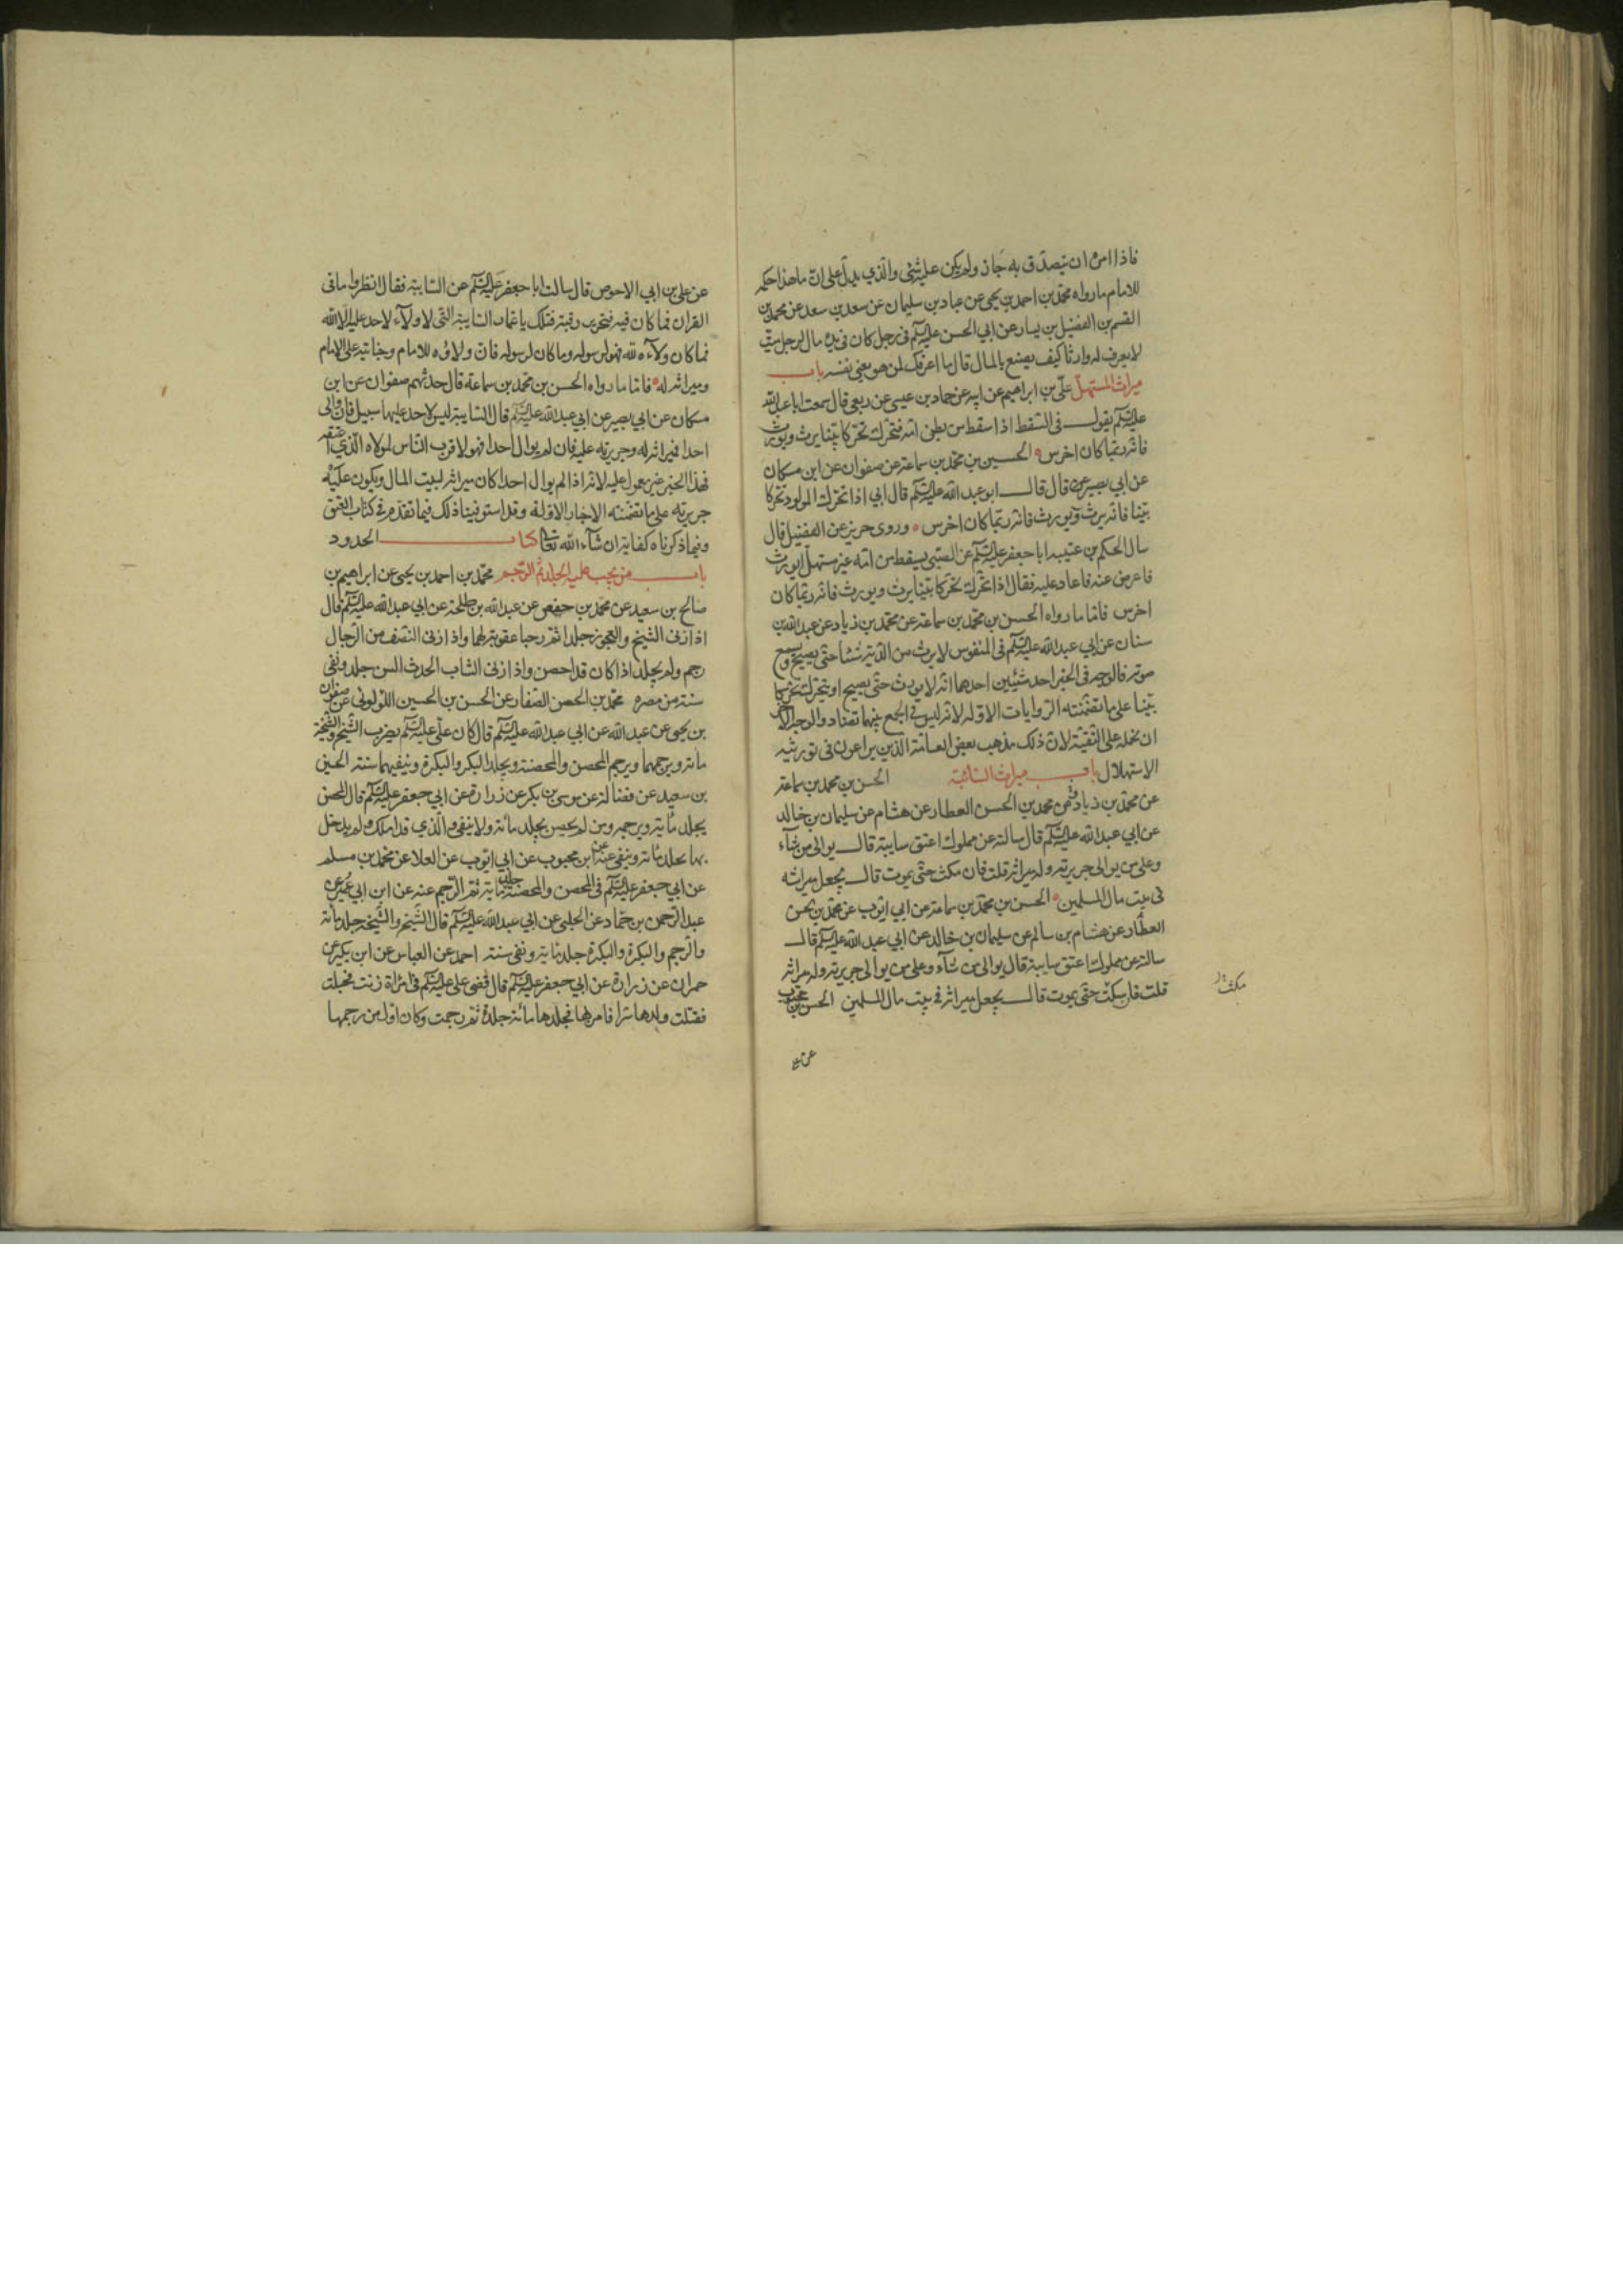 فاذا امره ان يتصدق به جاز ولم يكن عليه شئ والذي يدل على ان ما هذا حكمه
للامام ما رواه محمد بن احمد بن يحيى عن عباد بن سليمان عن سعد بن سعد عن محمد بن
القسم بن الفضيل بن يسار عن ابي الحسن عليه السلم في رجل كان في يده مال لرجل ميت
لا يعرف له وارثا كيف يصنع بالمال قال ما اعرفك لمن هو يعني نفسه باب
ميراث المستهل علي بن ابراهيم عن ابيه عن حماد بن عيسى عن ربعي قال سمعت ابا عبد الله
عليه السلم يقول في السقط اذا سقط من بطن امه فتحرك تحركا بينا يرث ويورث
فانه ربما كان اخرس الحسين بن محمد بن سماعة عن صفوان عن ابن مسكان
عن ابي بصير قال قال ابو عبد الله عليه السلم قال ابي اذا تحرك المولود تحركا
بينا فانه يرث ويورث فانه ربما كان اخرس وروى حريز عن الفضيل قال
سال الحكم بن عتيبه ابا جعفر عليه السلم عن الصبي يسقط من امه غير مستهل ايورث
فاعرض عنه فاعاد عليه فقال اذا تحرك تحركا بينا يرث ويورث فانه ربما كان
اخرس فاما ما رواه الحسن بن محمد بن سماعة عن محمد بن زياد عن عبد الله بن
سنان عن ابي عبد الله عليه السلم في المنفوس لا يرث من الدية شئا حتى يصيح ويسمع
صوته فالوجه في الخبر احد شيئين احدهما انه لا يورث حتى يصيح او يتحرك تحركا
بينا على ما تضمنته الروايات الاوله لانه ليس في الجمع بينهما تضاد والوجه الاخر
ان نحمله على التقية لان ذلك مذهب بعض العامة الذين يراعون في توريثه
الاستهلال باب ميراث السائبة الحسن بن محمد بن سماعة
عن محمد بن زياد عن محمد بن الحسن العطار عن هشام عن سليمان بن خالد
عن ابي عبد الله عليه السلم قال سالته عن مملوك اعتق سايبة قال يوالي من شآء
وعلى من يوالى جريرته وله ميراثه قلت فان مكث حتى يموت قال يجعل ميراثه
في بيت مال المسلمين الحسن بن محمد بن سماعة عن ابي ايوب عن محمد بن حسن
العطار عن هشام بن سالم عن سليمان بن خالد عن ابي عبد الله عليه السلم قال
سالته عن مملوك اعتق سايبة قال يوالى من شآء وعلى من يوالى جريرته وله ميراثه
قلت فان سكت حتى يموت قال يجعل ميراثه في بيت مال المسلمين الحسن بن محبوب
مكث
عن علي بن ابي الاحوص قال سالت ابا جعفر عليه السلم عن السايبة فقال انظروا ما في
القران فما كان فيه فتحرير رقبة فتلك يا عمار السايبة التي لا ولآء لاحد عليه الا الله
فما كان ولآءه لله فهو لرسوله وما كان لرسوله فان ولاؤه للامام وجنايته على الامام
وميراثه له فاما ما رواه الحسن بن محمد بن سماعة قال حدثهم صفوان عن ابن
مسكان عن ابي بصير عن ابي عبد الله عليه السلم قال السايبة ليس لاحد عليها سبيل فان والى
احدا فميراثه له وجريرته عليه فان لم يوال احدا فهو لاقرب الناس لمولاه الذي اعتقه
فهذا الخبر غير معمول عليه لانه اذا لم يوال احدا كان ميراثه لبيت المال ويكون عليه
جريرته على ما تضمنته الاخبار الاولة وقد استوفينا ذلك فيما تقدم في كتاب العتق
وفيما ذكرناه كفاية ان شآء الله تعالى كتاب الحدود
باب من يجب عليه الجلد ثم الرجم محمد بن احمد بن يحيى عن ابراهيم بن
صالح بن سعيد عن محمد بن حفص عن عبد الله بن طلحة عن ابي عبد الله عليه السلم قال
اذا زنى الشيخ والعجوز جلدا ثم رجما عقوبة لهما واذا زنى النصف من الرجال
رجم ولم يجلد اذا كان قد احصن واذا زنى الشاب الحدث السن جلد ونفي
سنة من مصره محمد بن الحسن الصفار عن الحسن بن الحسين اللؤلوئي عن صفوان
بن يحيى عن عبد الله عن ابي عبد الله عليه السلم قال كان علي عليه السلم يضرب الشيخ والشيخة
مائة ويرجمهما ويرجم المحصن والمحصنة ويجلد البكر والبكرة وينفيهما سنة الحسين
بن سعيد عن فضالة عن موسى بن بكر عن زرارة عن ابي جعفر عليه السلم قال المحصن
يجلد مائة ويرجم ومن لم يحصن يجلد مائة ولا ينفى والذي قد املك ولم يدخل
بها يجلد مائة وينفى عنه عن ابن محبوب عن ابي ايوب عن العلا عن محمد بن مسلم
عن ابي جعفر عليه السلم في المحصن والمحصنة جلد مائة ثم الرجم عنه عن ابن ابي عمير عن
عبد الرحمن بن حماد عن الحلبي عن ابي عبد الله عليه السلم قال الشيخ والشيخة جلد مائة
والرجم والبكرة والبكرة جلد مائة ونفي سنة احمد عن العباس عن ابن بكير عن
حمران عن زرارة عن ابي جعفر عليه السلم قال قضى علي عليه السلم في امرأة زنت فحبلت
فقتلت ولدها سرا فامر بها فجلدها مائة جلدة ثم رجمت وكان اول من رجمها